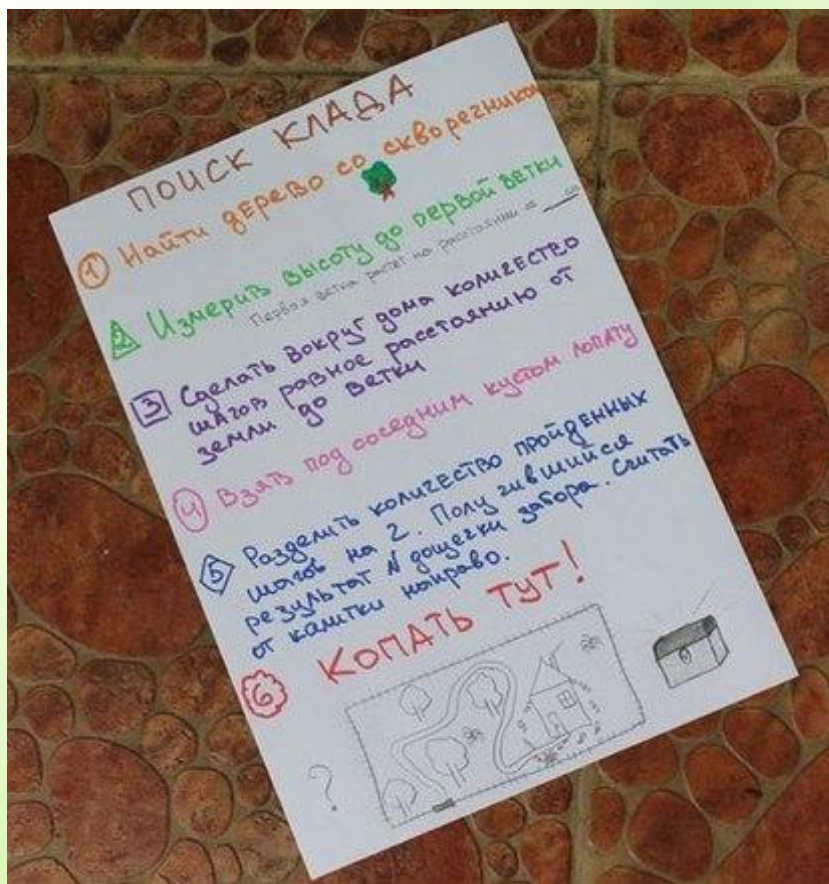 ПОИСК КЛАДА
① Найти дерево со скворечником
2 Измерить высоту до первой ветки
Первая ветка растёт на расстоянии в ___ см
3 Сделать вокруг дома количество
шагов равное расстоянию от
земли до ветки
④ Взять под соседним кустом лопату
5 Разделить количество пройденных
шагов на 2. Получившийся
результат N дощечки забора. Считать
от калитки направо.
6 КОПАТЬ ТУТ!
?